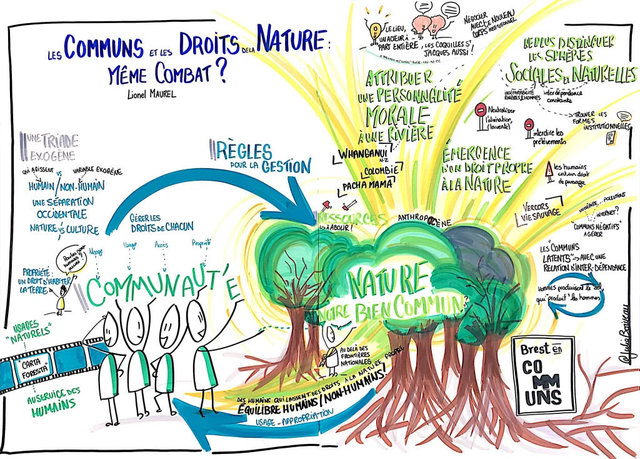 LES COMMUNS ET LES DROITS DE LA NATURE :
MÊME COMBAT ?
Lionel MAUREL
UNE TRIADE
EXOGÈNE
QUI AGISSENT VS VARIABLE EXOGÈNE
HUMAIN/NON-HUMAIN
UNE SÉPARATION
OCCIDENTALE
NATURE VS CULTURE
PROPRIÉTÉ
UN DROIT D'HABITER
LA TERRE
USAGES
"NATURELS"
CARTA
FORESTA
AU SERVICE DES
HUMAINS
RÈGLES
POUR LA GESTION
GÉRER LES
DROITS DE CHACUN
Usage
Accès
Propriété
COMMUNAUTÉ
LE LIEU,
UN ACTEUR À
PART ENTIÈRE
"LES COQUILLES S'
JACQUES AUSSI!
NÉGOCIER
AVEC LE NOUVEAU
CORPS
ATTRIBUER
UNE PERSONNALITÉ
MORALE
À UNE RIVIÈRE
WHANGANUI
NZ
COLOMBIE
PACHA MAMA
ÉMERGENCE
D'UN DROIT PROPRE
À LA NATURE
NE PLUS DISTINGUER
LES SPHÈRES
SOCIALES ET NATURELLES
interdépendance
constante
Neutraliser
l'aliénation
TROUVER LES
FORMES
INSTITUTIONNELLES
interdire les
prélèvements
les humains
VERCORS
VIE SAUVAGE
COMMUNS NÉGATIFS
À GÉRER
LES COMMUNS
LATENTS → AVEC UNE
RELATION D'INTER-DÉPENDANCE
qui "produit" les hommes
RESSOURCES
ANTHROPOCÈNE
NATURE
NOTRE BIEN COMMUN
AU DELÀ DES
FRONTIÈRES
NATIONALES
DES HUMAINS QUI LAISSENT DES DROITS À LA NATURE
ÉQUILIBRE HUMAINS/NON-HUMAINS!
USAGE - APPROPRIATION
Brest en
COMMUNS